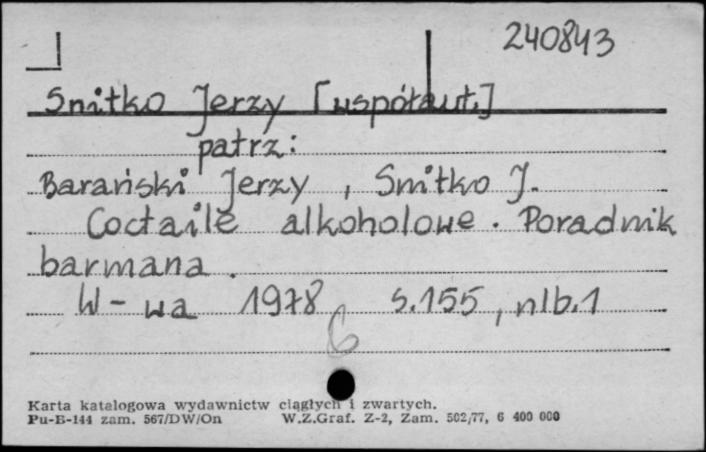 240843
Snitko Jerzy [współaut.]
patrz:
Barański Jerzy, Snitko J.
Coctaile alkoholowe. Poradnik
barmana.
W-wa 1978 s.155, nlb.1
6
Karta katalogowa wydawnictw ciągłych i zwartych.
Pu-B-144 zam. 567/DW/On W.Z.Graf. Z-2, Zam. 502/77, 6 400 000